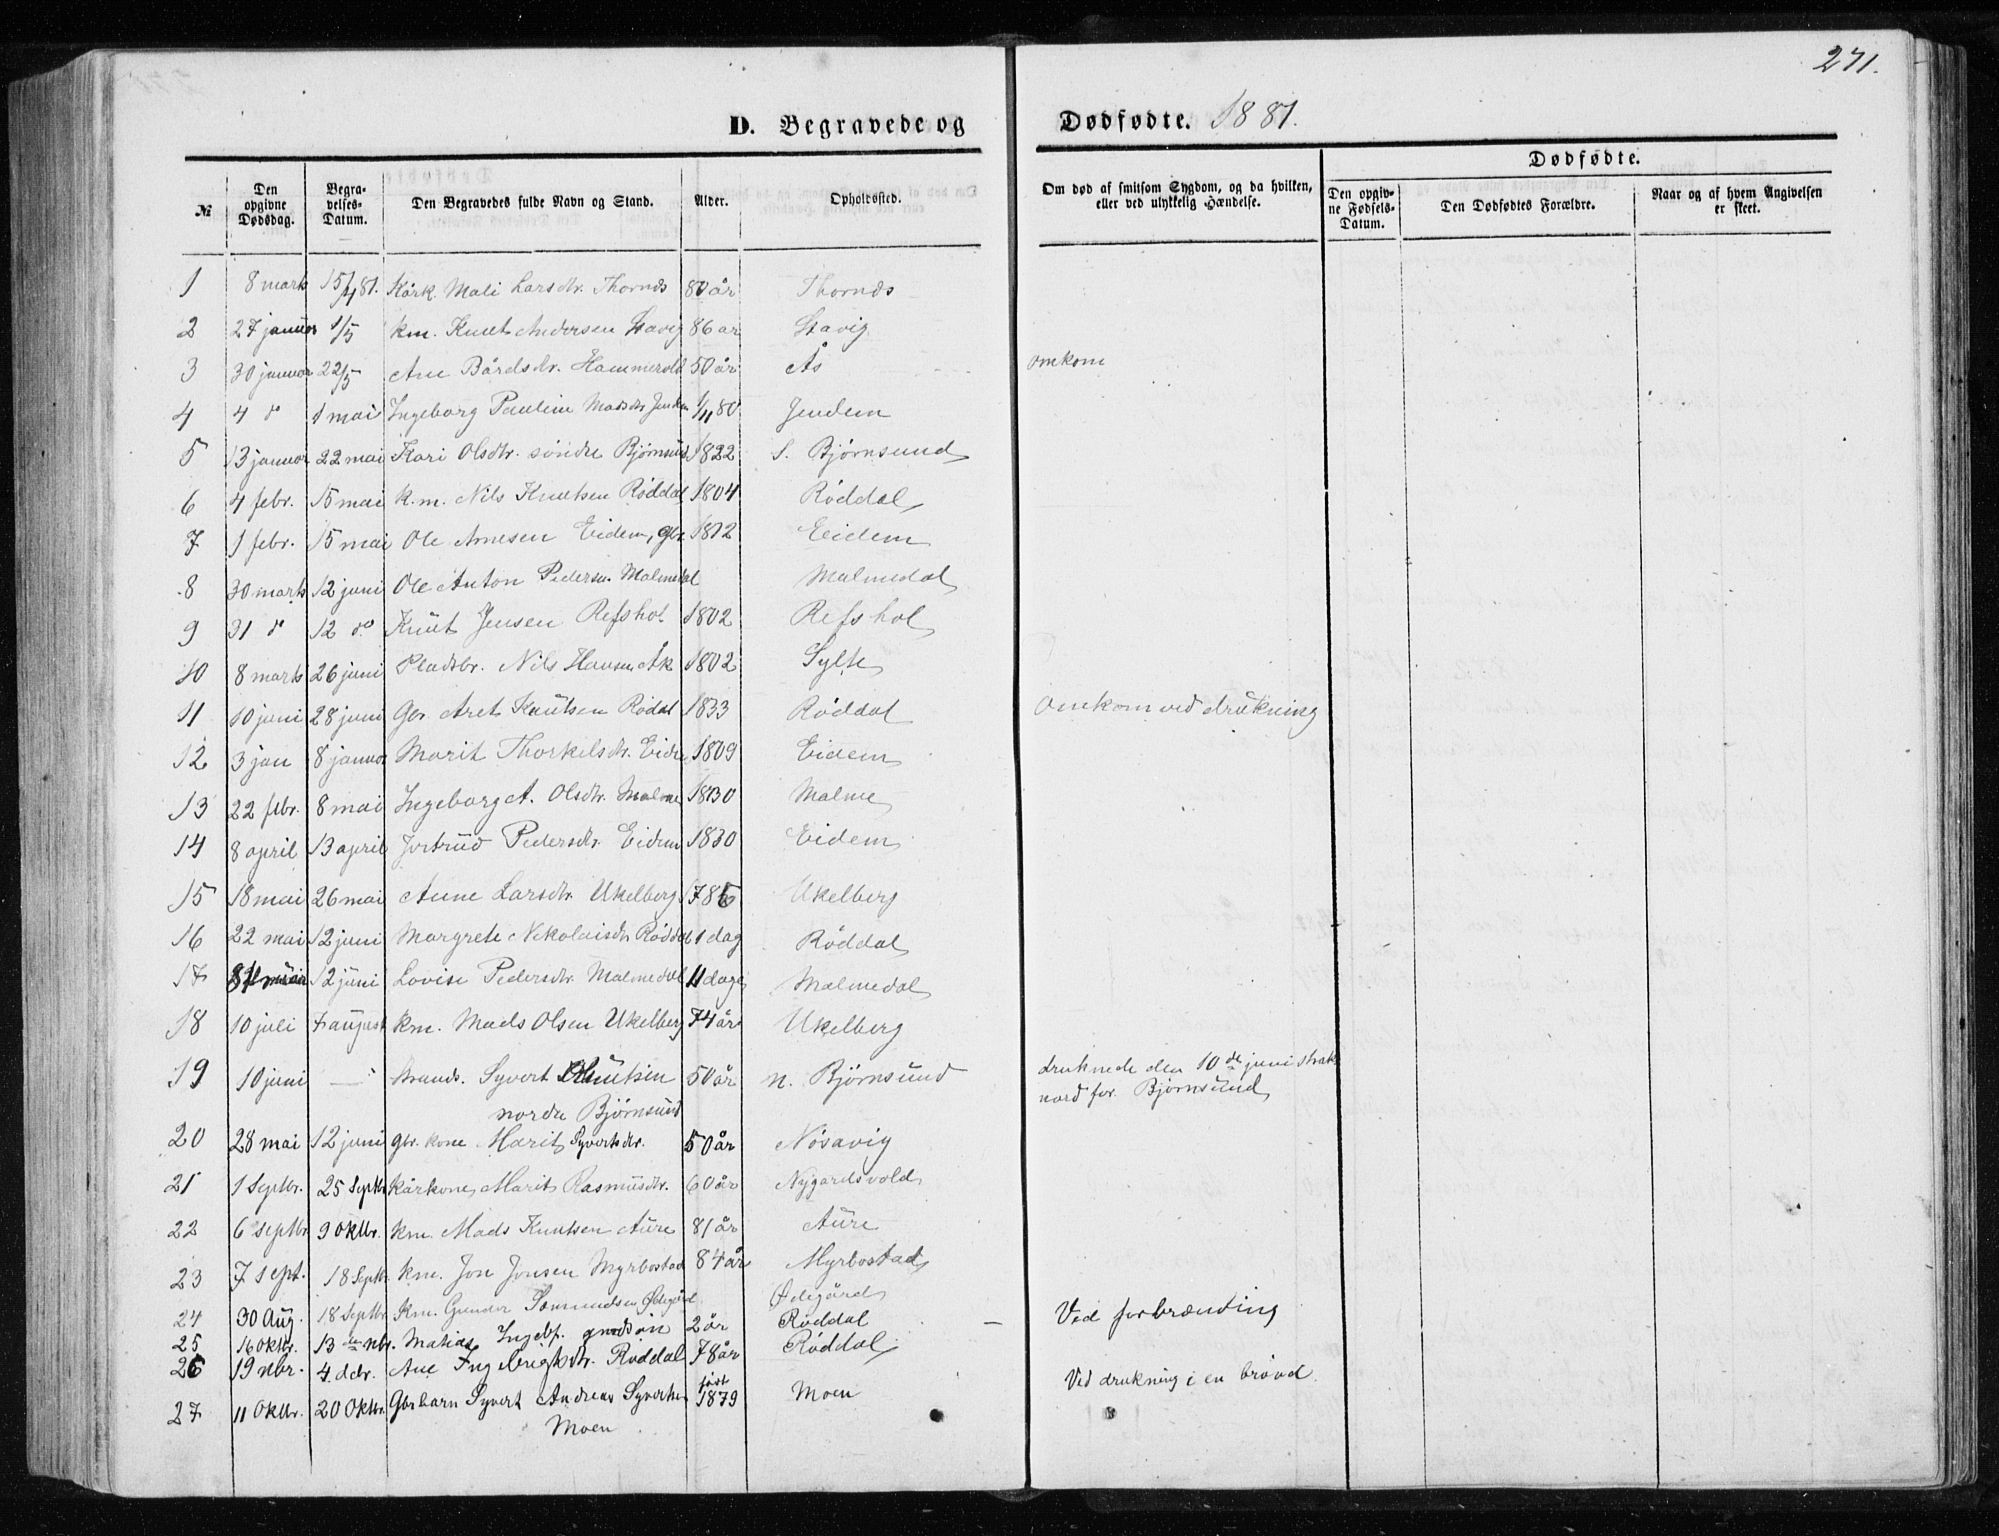 271.
D. Begravede og Dødfødte. 1881.
Dødfødte.
№ Den opgivne Dødsdag. Begravelses-Datum. Den Begravedes fulde Navn og Stand. Alder. Opholdssted. Om død af smitsom Sygdom, og da hvilken, eller ved ulykkelig Hændelse. Den opgivne Fødsels-Datum. Den Dødfødtes Forældre. Naar og af hvem Angivelsen er skeet.
1 8 marts 15/4 81. Kårk. Mali Larsdtr. Thornds 80 år Thornds
2 27 januar 1/5 km. Knut Andersen Stavig 86 år Stavig
3 30 januar 22/5 Ane Bårdsdtr. Hammervold 50 år Ås omkom
4 4 do 1 mai Ingeborg Pauline Madsdtr Jendem 1/11 80. Jendem
5 13 januar 22 mai Kari Olsdtr. søndre Bjørnsund 1822 S. Bjørnsund
6 4 febr. 15 mai k.m. Nils Knutsen Røddal 1804 Røddal
7 1 febr. 15 mai Ole Arnesen Eidem, gbr 1812 Eidem
8 30 marts 12 juni Ole Anton Pedersen Malmedal Malmedal
9 31 do 12 do Knut Jensen Refshol 1802 Refshol
10 8 marts 26 juni Pladsbr. Nils Hansen Åk 1802 Sylte
11 10 juni 28 juni Gbr. Aret Knutsen Rødal 1833 Røddal Omkom ved drukning
12 3 jan 8 januar Marit Thorkilsdtr. Eidem 1809 Eidem
13 22 febr. 8 mai Ingeborg A. Olsdtr. Malme 1830 Malme
14 8 april 13 april Jortrud Pedersdtr. Eidem 1830 Eidem
15 18 mai 26 mai Anne Larsdtr. Ukelberg 1786 Ukelberg
16 22 mai 12 juni Margrete Nikolaisdtr Røddal 1 dag Røddal
17 31 mai 12 juni Lovise Pedersdtr. Malmedal 11 dage Malmedal
18 10 juli 7 august km. Mads Olsen Ukelberg 74 år Ukelberg
19 10 juni — Strands. Syvert Knutsen 50 år n. Bjørnsund druknede den 10de juni strak
nordre Bjørnsund nord for Bjørnsund
20 28 mai 12 juni gbr. kone Marit Syvertsdtr. 50 år Nøsavig
21 1 Septbr. 25 Septbr kårkone Marit Rasmusdtr. 60 år Nygardsvold
22 6 septbr 9 Oktbr. km. Mads Knutsen Aure 81 år Aure
23 7 sept. 18 Septbr km. Jon Jonsen Myrbostad 84 år Myrbostad
24 30 Aug. 18 Septbr Km. Gunder Sæmundsen Ødegård Ødegård
25 16 Oktbr. 13 de nbr. Matias 2 år Røddal — Ved forbrænding
26 19 nbr. 4. dcbr. Ane Ingebrigtsdtr. Røddal 78 år Røddal
27 11 Oktbr. 20 Oktbr. Gbr barn Syvert Andreas Syvertsen født 1879 Moen Ved drukning i en brønd.
Moen